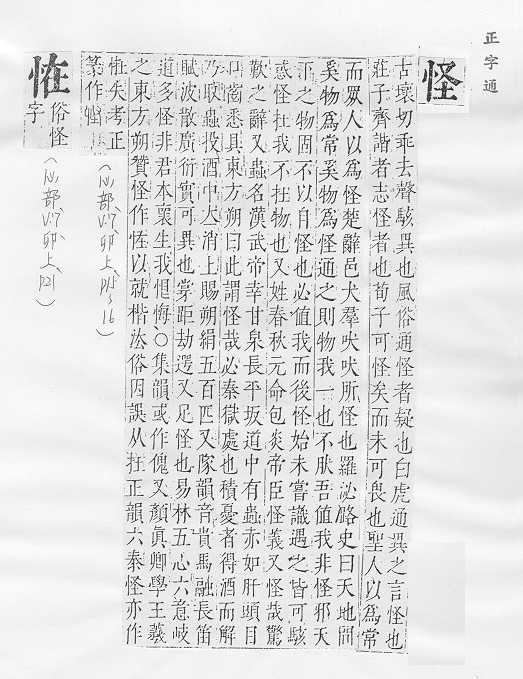 正字通
怪
古壞切乖去聲駭異也風俗通怪者疑也白虎通異之言怪也
莊子齊諧者志怪者也荀子可怪矣而未可畏也聖人以爲常
而眾人以爲怪楚辭邑犬羣吠吠所怪也羅泌路史曰天地間
奚物爲常奚物爲怪通之則物我一也不肰吾值我非怪邪天
下之物固不以自怪也必值我而後怪始未嘗識遇之皆可駭
惑怪在我不在物也又姓春秋元命包炎帝臣怪義又怪哉驚
歎之辭又蟲名漢武帝幸甘泉長平坂道中有蟲赤如肝頭目
口齒悉具東方朔曰此謂怪哉必秦獄處也積憂者得酒而解
乃取蟲投酒中大消上賜朔絹五百匹又隊韻音貴馬融長笛
賦波散廣衍實可異也掌距劫遌又足怪也易林五心六意岐
道多怪非君本裹生我恨悔○集韻或作傀又顏眞卿學王羲
之東方朔贊怪作恠以就楷法俗因誤从在正韻六泰怪亦作
恠失考正
篆作
恠
俗怪
字
(心部, V.7, 卯上, P15~16)
(心部, V.7, 卯上, P21)